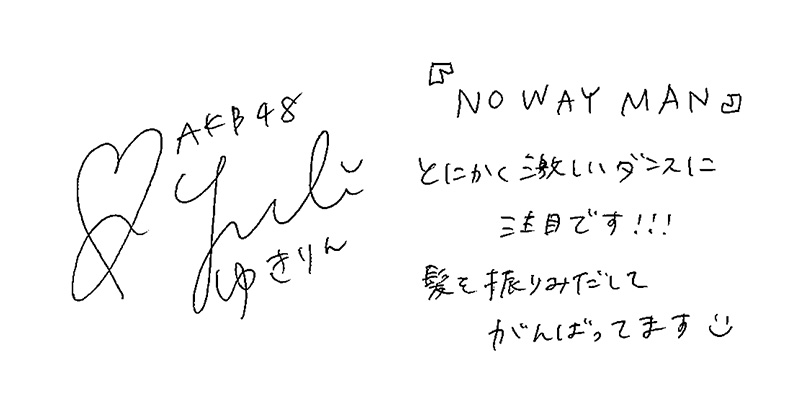 AKB48
Yuki
ゆきりん
『NO WAY MAN』
とにかく激しいダンスに
注目です!!!
髪を振りみだして
がんばってます